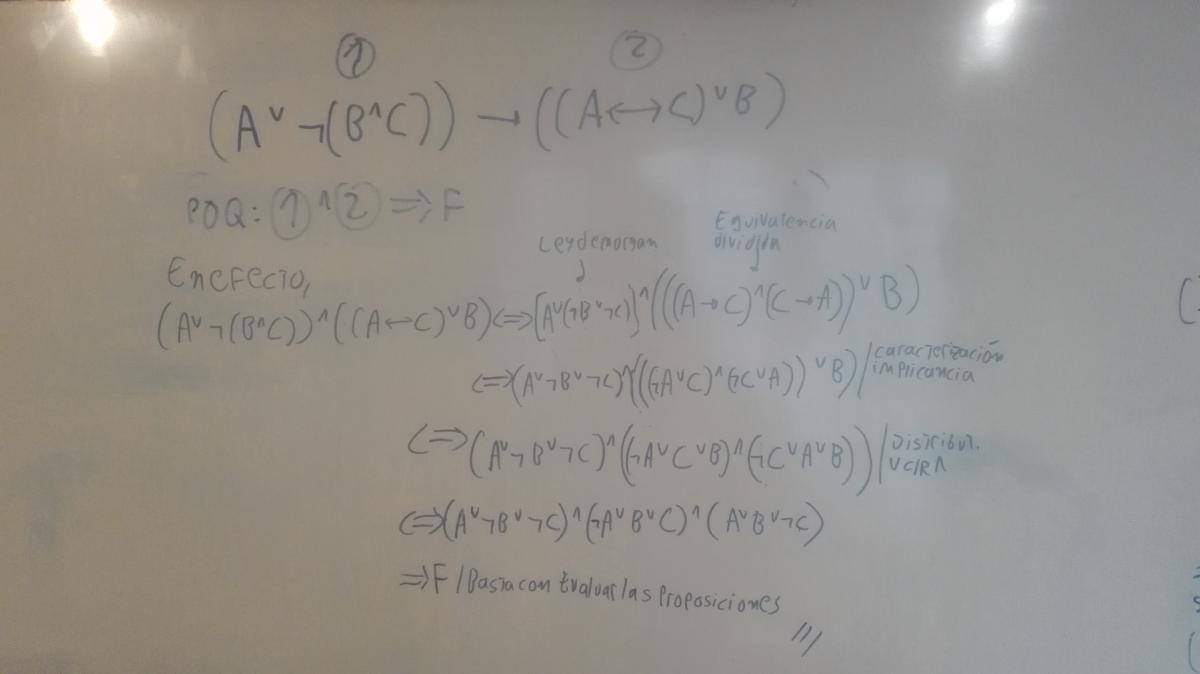 ① ②
(A ∨ ¬(B ∧ C)) → ((A ↔ C) ∨ B)
PDQ: ① ∧ ② ⇒ F
Ley demorgan
Equivalencia
dividida
En efecto,
(A ∨ ¬(B ∧ C)) ∧ ((A ↔ C) ∨ B) ⇔ [A ∨ (¬B ∨ ¬C)] ∧ (((A → C) ∧ (C → A)) ∨ B)
⇔ (A ∨ ¬B ∨ ¬C) ∧ (((¬A ∨ C) ∧ (¬C ∨ A)) ∨ B) / caracterización
implicancia
⇔ (A ∨ ¬B ∨ ¬C) ∧ ((¬A ∨ C ∨ B) ∧ (¬C ∨ A ∨ B)) / Distribut.
∨ C/R ∧
⇔ (A ∨ ¬B ∨ ¬C) ∧ (¬A ∨ B ∨ C) ∧ (A ∨ B ∨ ¬C)
⇒ F / Basta con Evaluar las Proposiciones
///